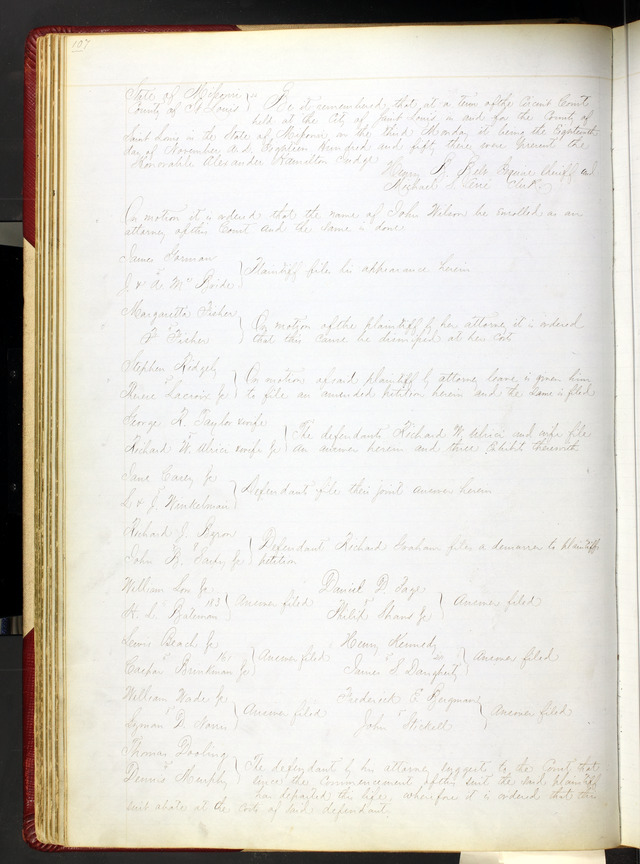 107
State of Missouri } ss
County of St Louis } Be it remembered, that at a term of the Circuit Court
held at the City of Saint Louis in and for the County of
Saint Louis in the State of Missouri on the third Monday it being the Eighteenth
day of November A.D. Eighteen hundred and fifty there were present the
Honorable Alexander Hamilton Judge
Henry Esquire Sheriff and
Michael S. Cerré Clerk
On motion it is ordered that the name of John Wilson be enrolled as an
attorney of this Court and the same is done
James Gorman
vs } Plaintiff files his appearance herein
J & A McBride
Margaretta Fisher
vs } On motion of the plaintiff by her attorney it is ordered
Fisher that this cause be dismissed at her cost
Stephen Ridgely
vs } On motion of said plaintiff by attorney leave is given him
Lacrois Jr to file an amended petition herein and the same is filed
George R. Taylor & wife
vs } The defendants Richard W. Ulrici and wife file
Richard W. Ulrici & wife an answer herein and three Exhibits therewith
Jane Carey
vs } Defendants file their joint answer herein
& J. Winkelman
Richard J. Byron
vs } Defendant Richard Graham files a demurrer to plaintiffs
John petition
William
vs 183 } Answer filed
H. L. Bateman
Daniel D. Page
vs } Answer filed
Philip
Lewis Beach
vs } Answer filed
Caspar Brinkman
Henry Kennedy
vs } Answer filed
James S. Daugherty
William Wade
vs } Answer filed
Lyman D.
Frederick E. Bergman
vs } Answer filed
John Stickell
Thomas Dooling
vs } The defendant by his attorney suggests to the Court that
Dennis Murphy since the commencement of this suit the said plaintiff
has departed this life, wherefore it is ordered that this
suit abate at the costs of said defendant